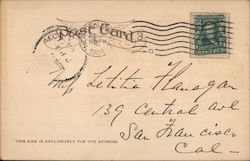 Post Card
Miss Letitia Flanagan
139 Central Ave
San Francisco
Cal-
THIS SIDE IS EXCLUSIVELY FOR THE ADDRESS.